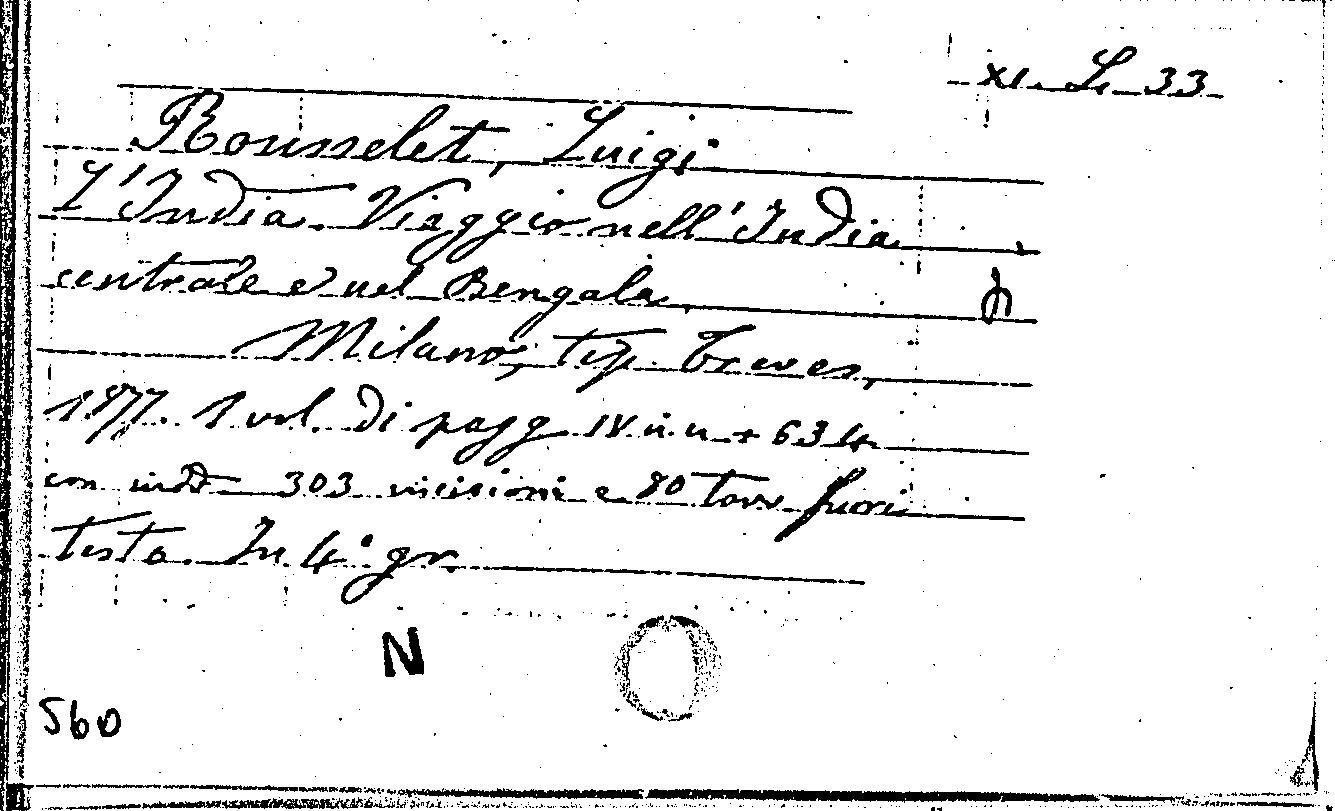 XI. L. 33
Rousselet, Luigi
L'India. Viaggio nell'India
centrale e nel Bengala.
Milano, tip. Treves,
1877. 1 vol. di pagg IV n n + 634
con 303 incisioni e 80 tavv fuori
testo. In 4° gr.
N
560